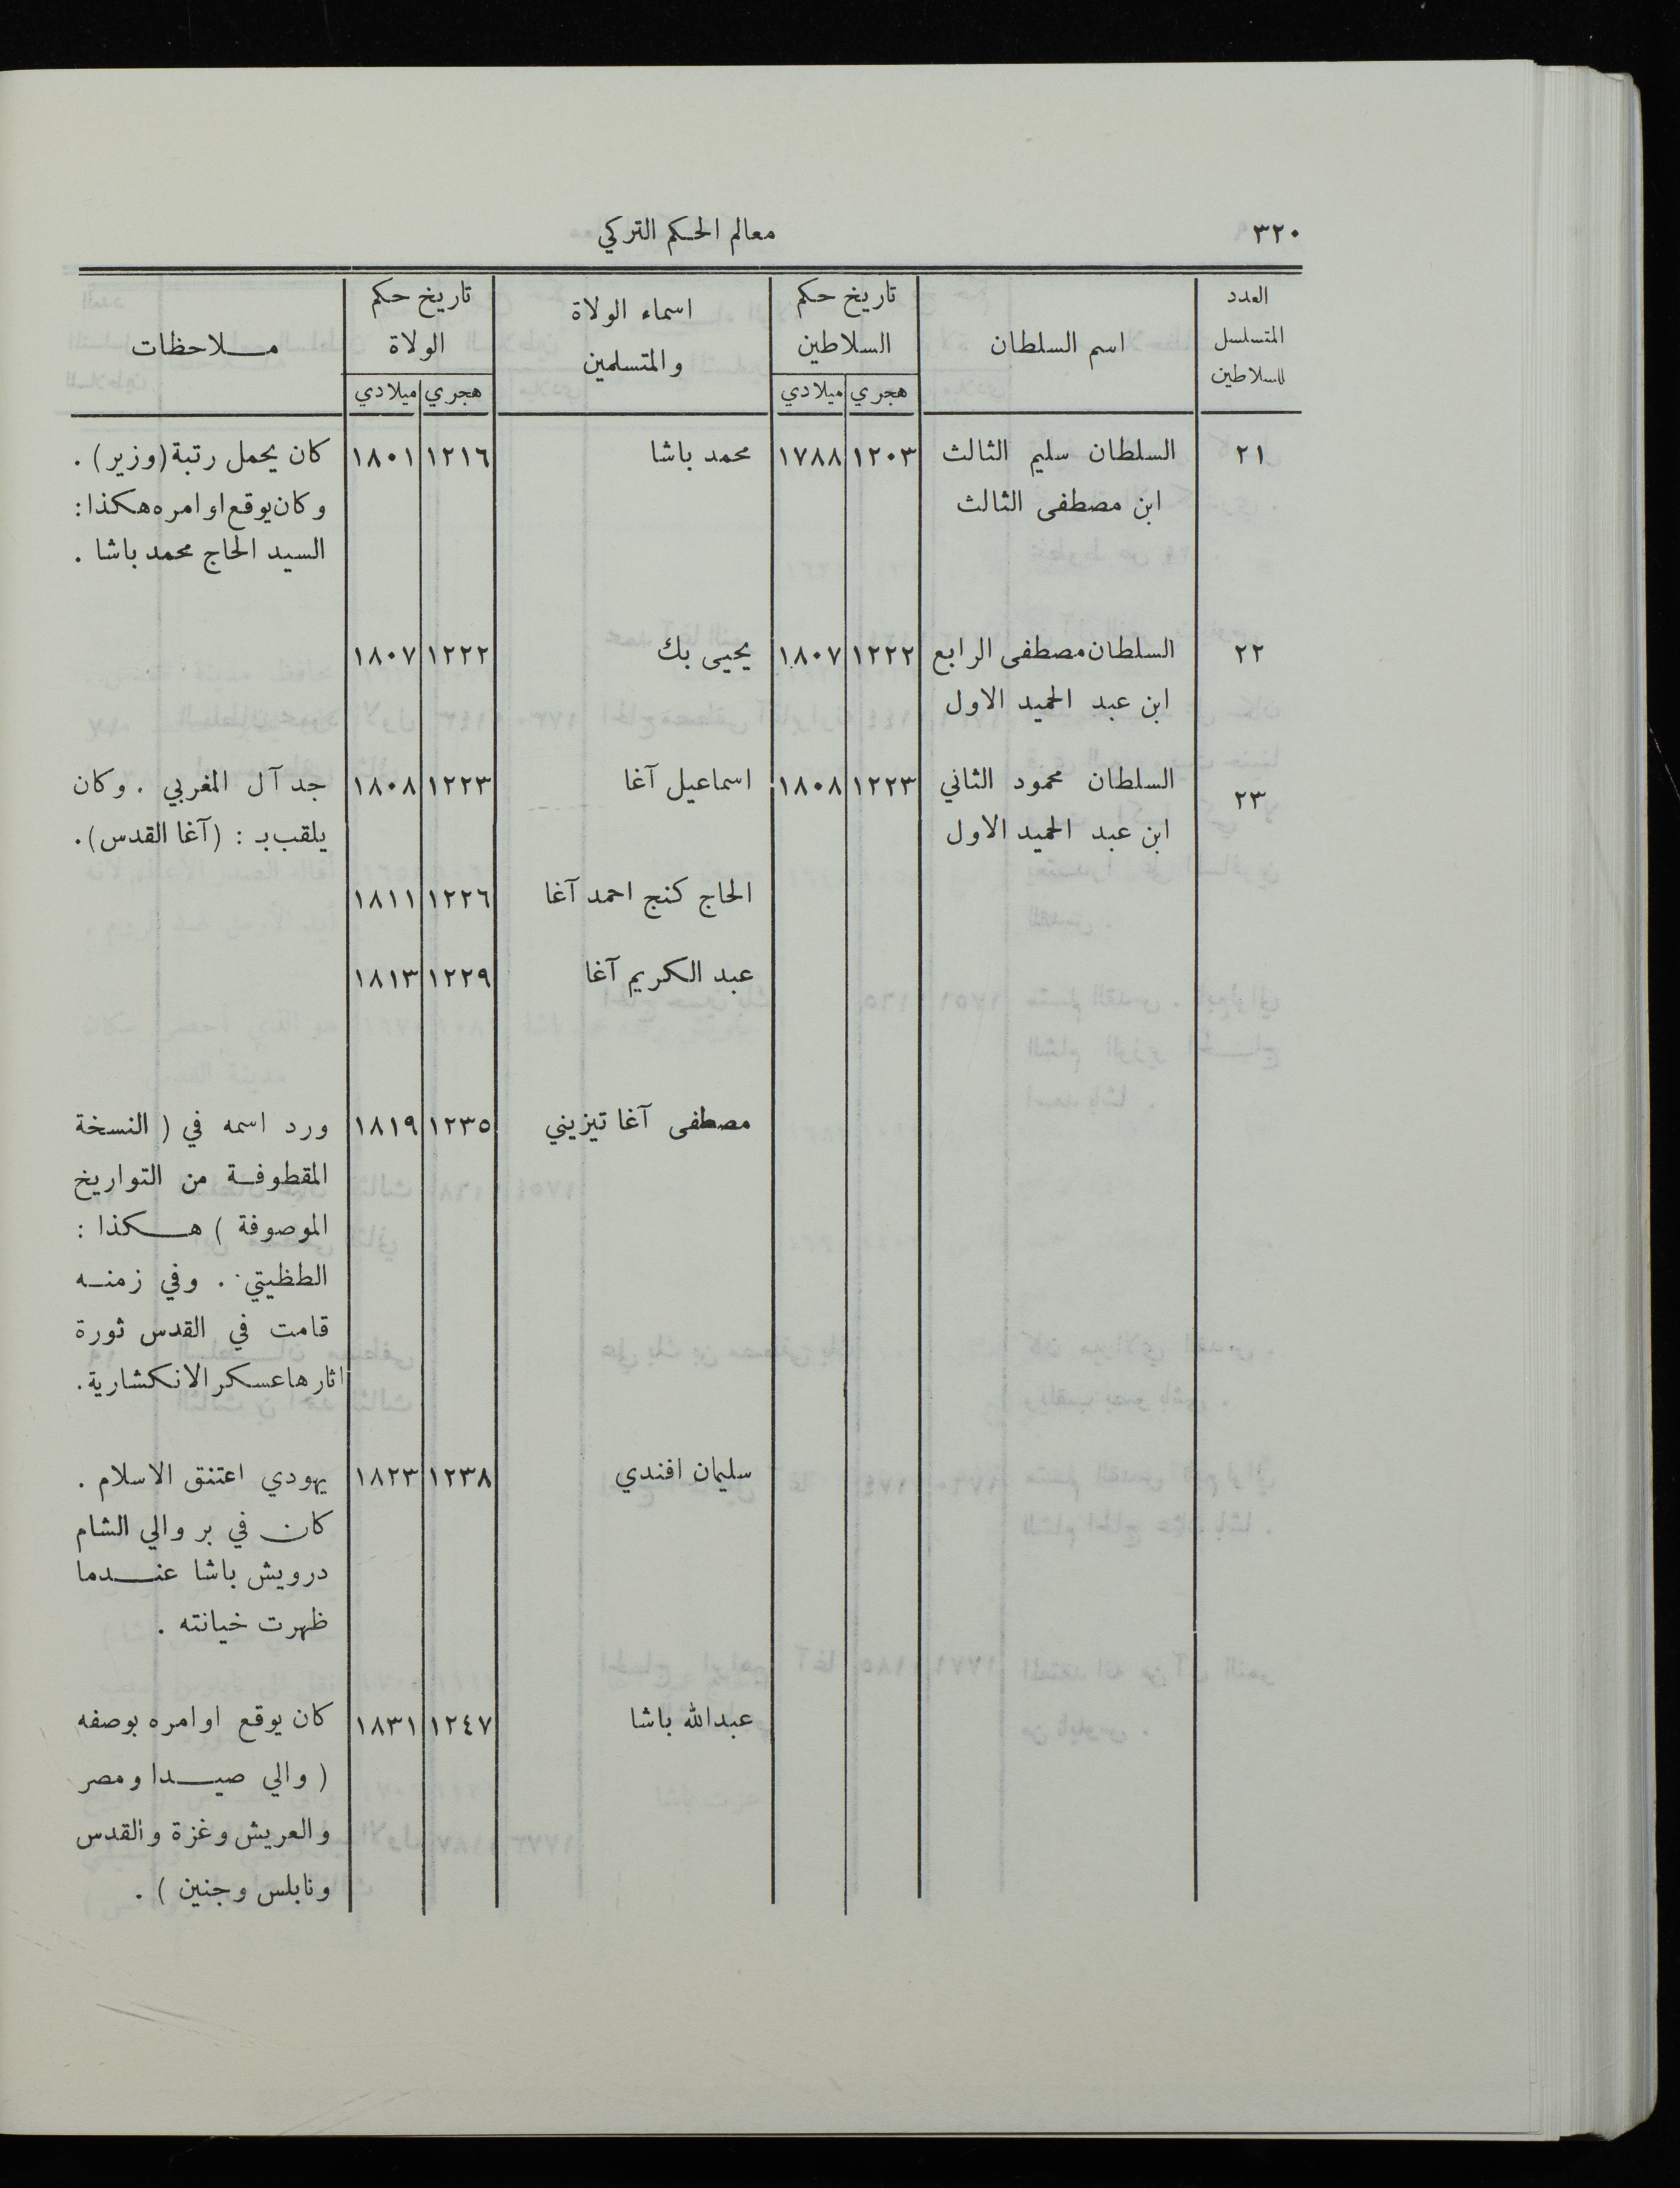 ٣٢٠
معالم الحكم التركي
العدد المتسلسل للسلاطين | اسم السلطان | تاريخ حكم السلاطين | اسماء الولاة والمتسلمين | تاريخ حكم الولاة | ملاحظات
هجري | ميلادي | هجري | ميلادي
٢١ | السلطان سليم الثالث | ١٢٠٣ | ١٧٨٨ | محمد باشا | ١٢١٦ | ١٨٠١ | كان يحمل رتبة (وزير) .
ابن مصطفى الثالث | وكان يوقع اوامره هكذا :
السيد الحاج محمد باشا .
٢٢ | السلطان مصطفى الرابع | ١٢٢٢ | ١٨٠٧ | يحيى بك | ١٢٢٢ | ١٨٠٧
ابن عبد الحميد الاول
٢٣ | السلطان محمود الثاني | ١٢٢٣ | ١٨٠٨ | اسماعيل آغا | ١٢٢٣ | ١٨٠٨ | جد آل المغربي . وكان
ابن عبد الحميد الاول | يلقب بـ : (آغا القدس) .
الحاج كنج احمد آغا | ١٢٢٦ | ١٨١١
عبد الكريم آغا | ١٢٢٩ | ١٨١٣
مصطفى آغا تيزيني | ١٢٣٥ | ١٨١٩ | ورد اسمه في ( النسخة
المقطوفة من التواريخ
الموصوفة ) هكذا :
الطظيتي . وفي زمنه
قامت في القدس ثورة
اثارها عسكر الانكشارية .
سليمان افندي | ١٢٣٨ | ١٨٢٣ | يهودي اعتنق الاسلام .
كان في بر والي الشام
درويش باشا عندما
ظهرت خيانته .
عبدالله باشا | ١٢٤٧ | ١٨٣١ | كان يوقع اوامره بوصفه
( والي صيدا ومصر
والعريش وغزة والقدس
ونابلس وجنين ) .